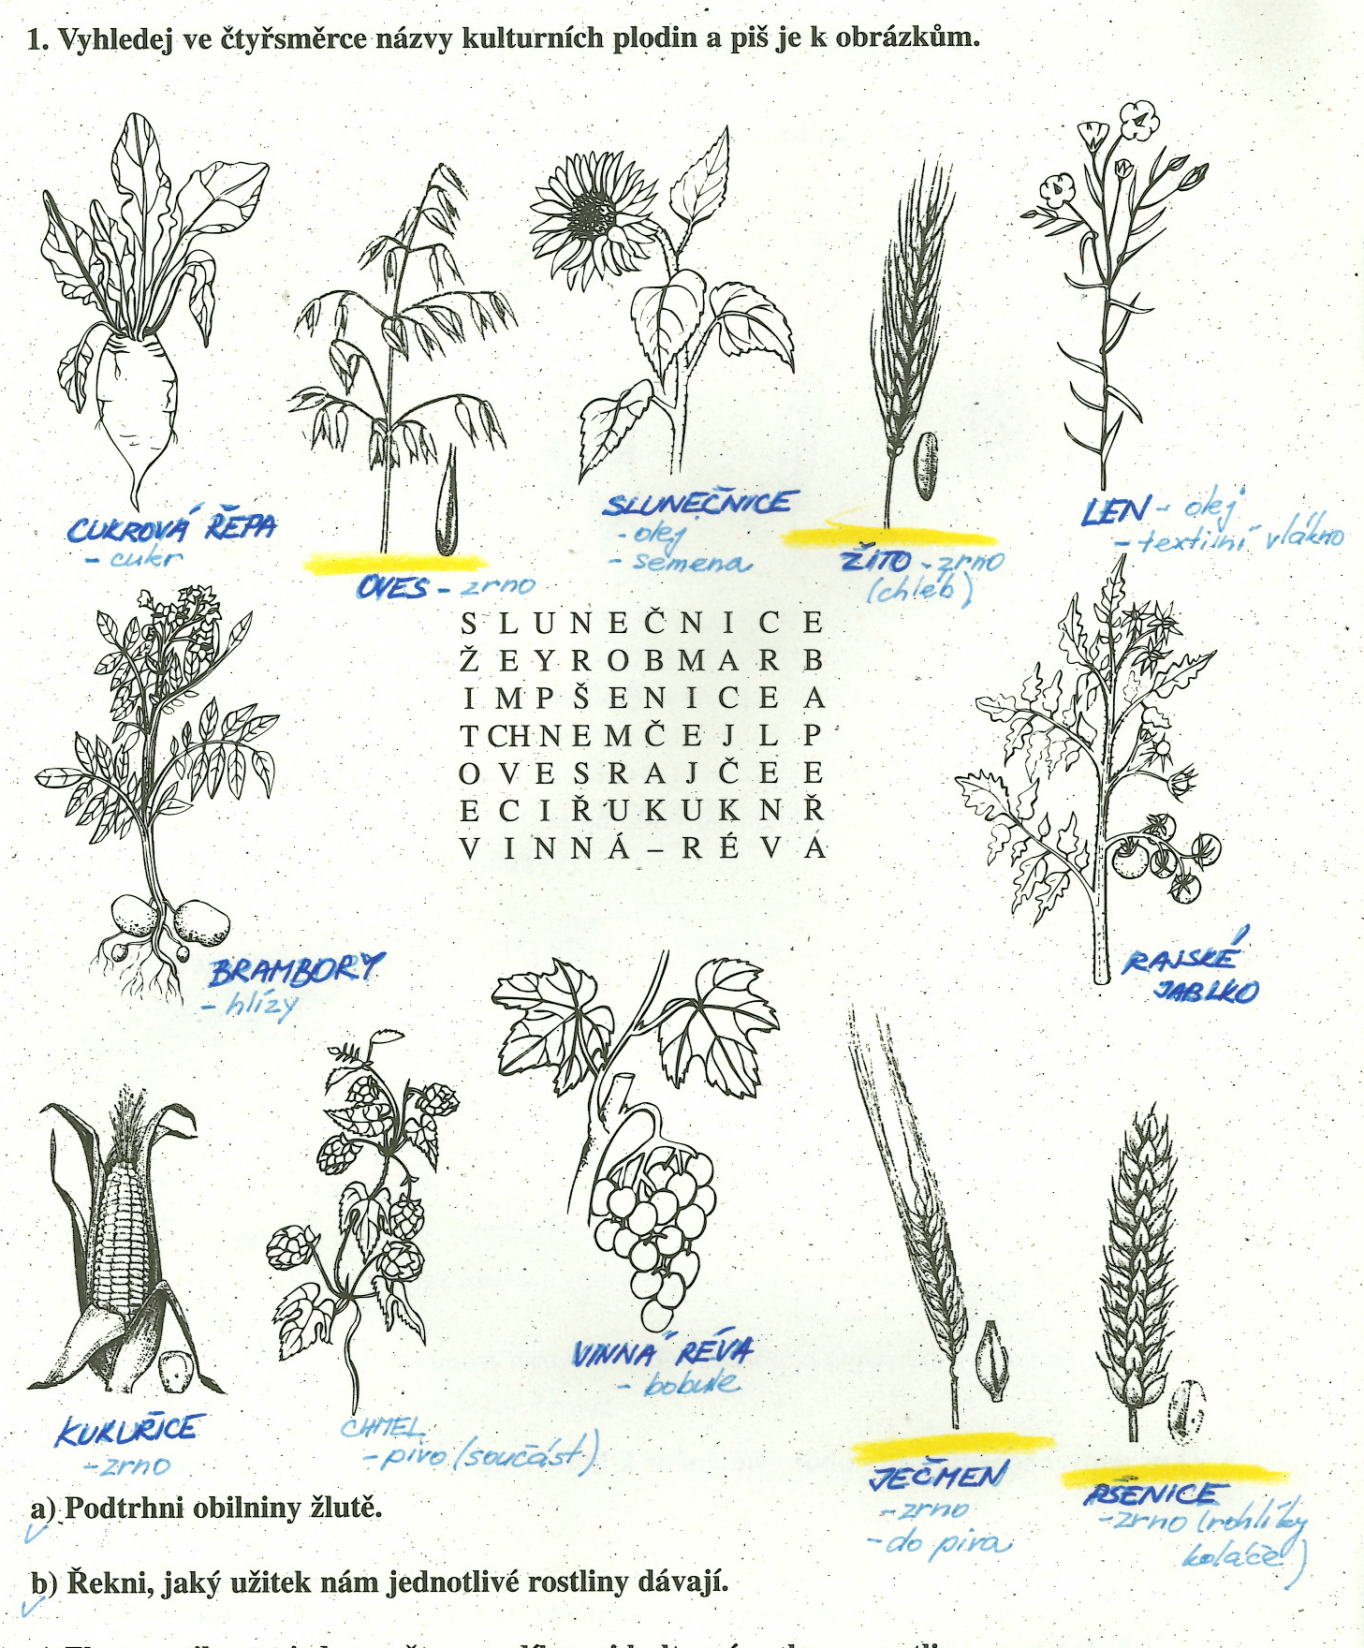 1. Vyhledej ve čtyřsměrce názvy kulturních plodin a piš je k obrázkům.
CUKROVÁ ŘEPA
- cukr
OVES - zrno
SLUNEČNICE
- olej
- semena
ŽITO - zrno
(chléb)
LEN - olej
- textilní vlákno
S L U N E Č N I C E
Ž E Y R O B M A R B
I M P Š E N I C E A
T CH N E M Č E J L P
O V E S R A J Č E E
E C I Ř U K U K N Ř
V I N N Á – R É V A
BRAMBORY
- hlízy
RAJSKÉ
JABLKO
KUKUŘICE
- zrno
CHMEL
- pivo (součást)
VINNÁ RÉVA
- bobule
JEČMEN
- zrno
- do piva
PŠENICE
- zrno (rohlíky
koláče)
a) Podtrhni obilniny žlutě.
b) Řekni, jaký užitek nám jednotlivé rostliny dávají.